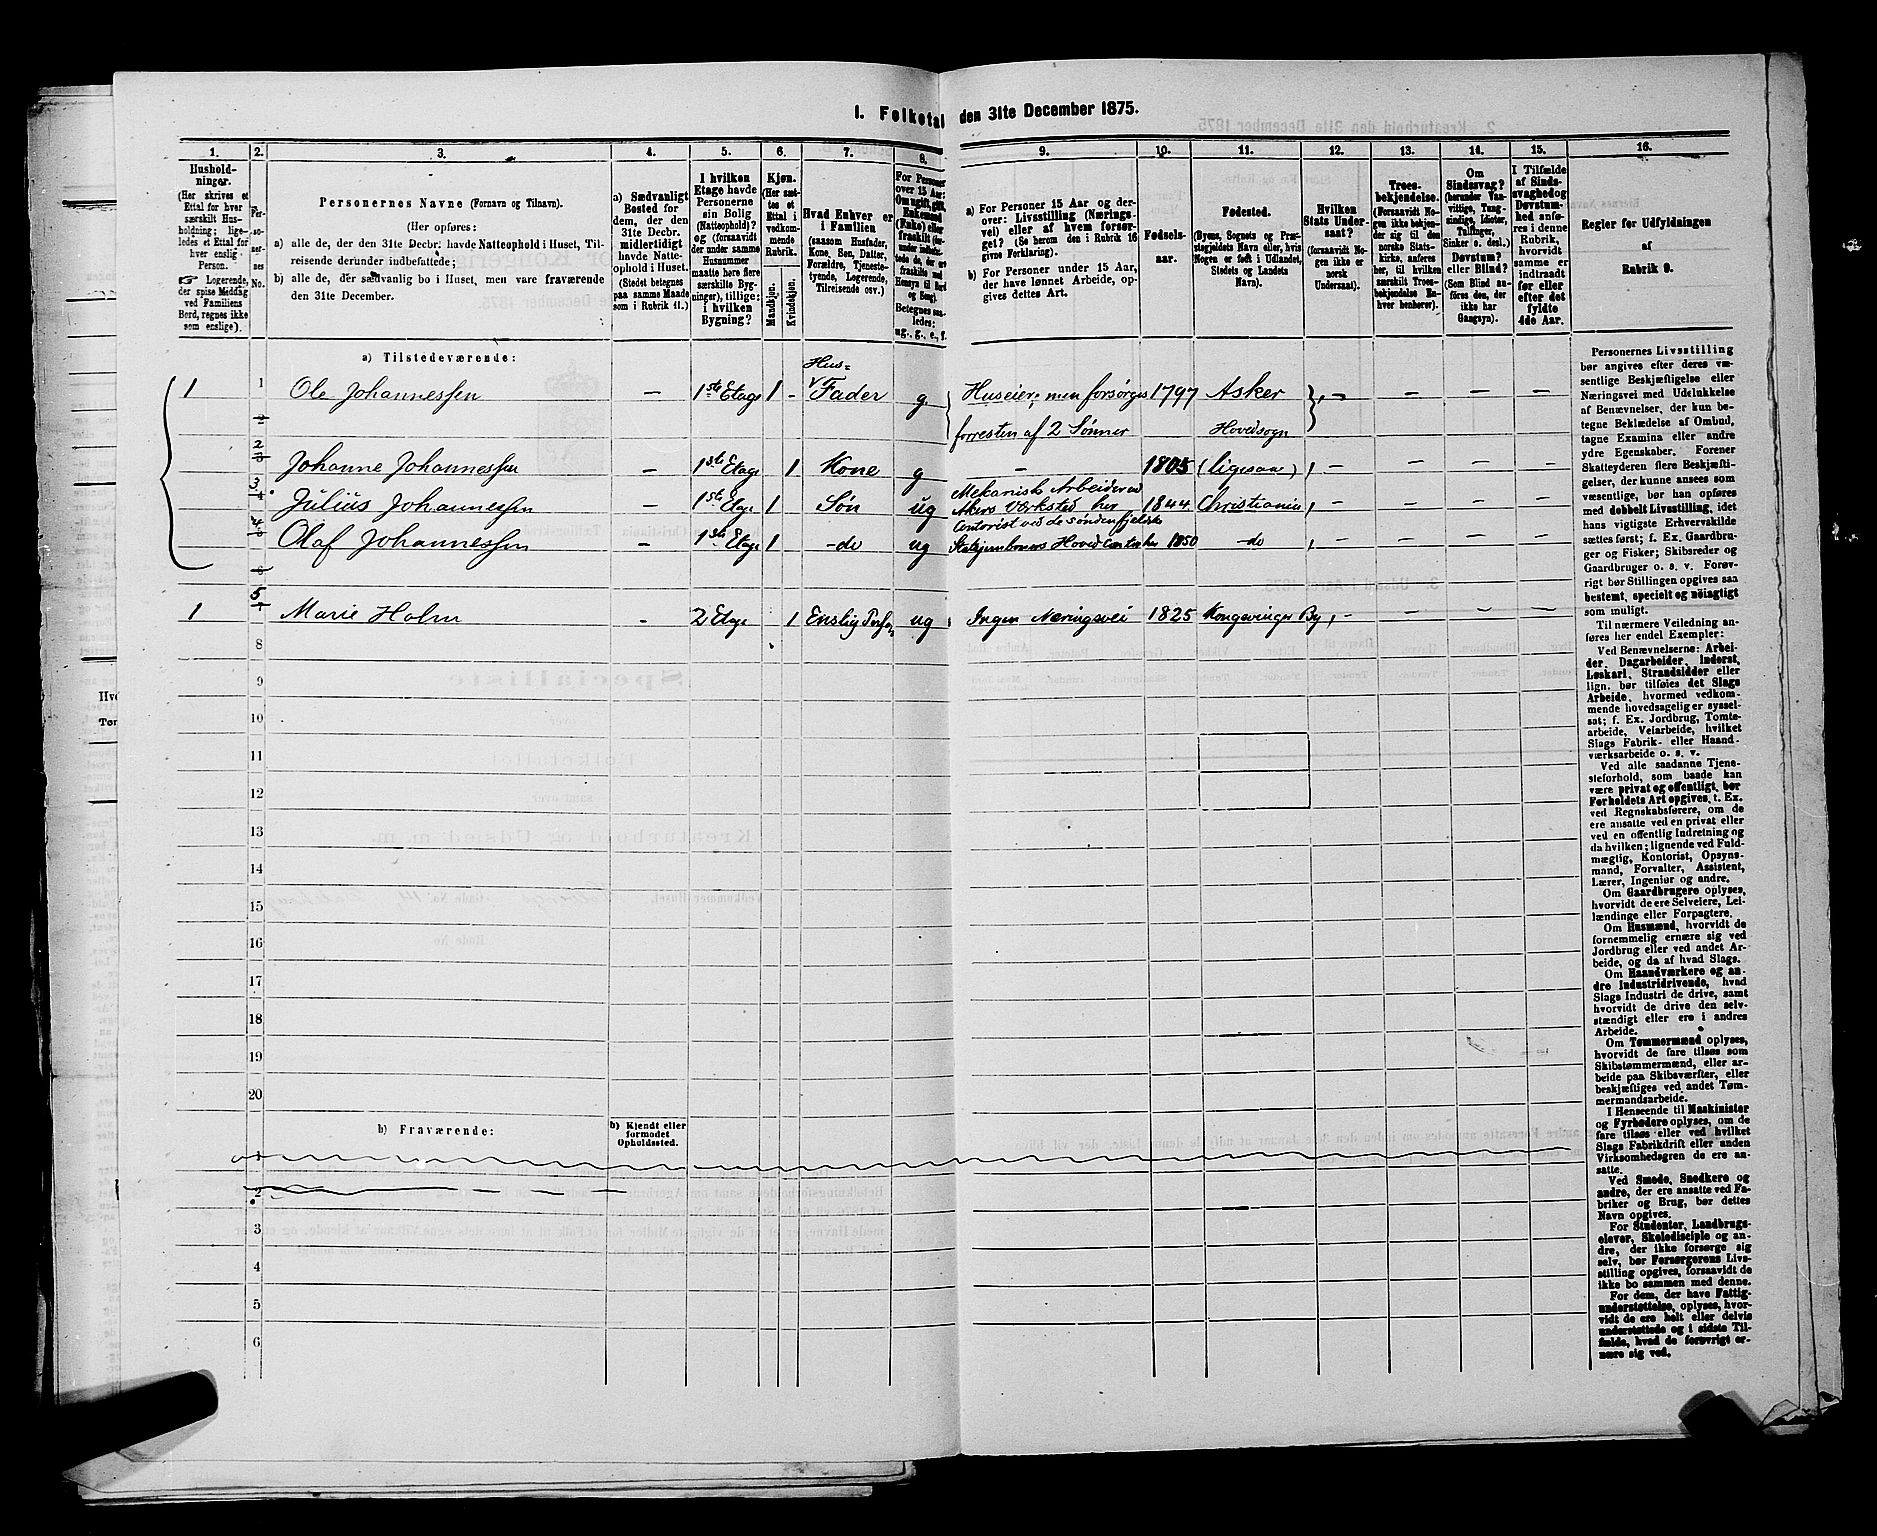 1. Folketal den 31te December 1875.
1. 2. 3. 4. 5. 6. 7. 8. 9. 10. 11. 12. 13. 14. 15. 16.
Hushold-
ninger.
(Her skrives et
Ettal for hver
særskilt Hus-
holdning; lige-
ledes et Ettal for
hver enslig
Person.
Logerende,
der spise Middag
ved Familiens
Bord, regnes ikke
som enslige).
Per-
so-
ner-
nes
No.
Personernes Navne (Fornavn og Tilnavn).
(Her opføres:
a) alle de, der den 31te Decbr. havde Natteophold i Huset, Til-
reisende derunder indbefattede;
b) alle de, der sædvanlig bo i Huset, men vare fraværende
den 31te December.
a) Sædvanligt
Bosted for
dem, der den
31te Decbr.
midlertidigt
havde Natte-
ophold i Huset.
(Stedet betegnes
paa samme Maade
som i Rubrik 11.)
I hvilken
Etage havde
Personerne
sin Bolig
(Natteophold)?
og (forsaavidt
der under samme
Husnummer
maatte høre flere
særskilte Byg-
ninger), tillige:
i hvilken
Bygning?
Kjøn.
(Her sæt-
tes et
Ettal i
vedkom-
mende
Rubrik.
Mandkjøn.
Kvindekjøn.
Hvad Enhver er
i Familien
(saasom Husfader,
Kone, Søn, Datter,
Forældre, Tjeneste-
tyende, Logerende,
Tilreisende osv.)
For Personer
over 15 Aar:
Om ugift, gift,
Enkemand
(Enke) eller
fraskilt
Betegnes saa-
ledes:
ug., g., e., f.
a) For Personer 15 Aar og der-
over: Livsstilling (Nærings-
vei) eller af hvem forsør-
get? (Se herom den i Rubrik 16
givne Forklaring).
b) For Personer under 15 Aar,
der have lønnet Arbeide, op-
gives dettes Art.
Fødsels-
aar.
Fødested.
(Byens, Sognets og Præ-
stegjeldets Navn eller, hvis
Nogen er født i Udlandet,
Stedets og Landets
Navn).
Hvilken
Stats Under-
saat?
(forsaavidt No-
gen ikke er
norsk
Undersaat).
Troes-
bekjendelse.
(Forsaavidt No-
gen ikke bekjen-
der sig til den
norske Stats-
kirke, anføres
her, til hvilken
særskilt Troes-
bekjendelse En-
hver henhører).
Om
Sindssvag?
(herunder Van-
vittige, Tung-
sindige, Idioter,
Tullinger,
Sinker o. desl.)
Døvstum?
eller Blind?
(Som Blind an-
føres den, der
ikke har
Gangsyn).
I Tilfælde
af Sinds-
svaghed og
Døvstum-
hed anfø-
res i denne
Rubrik,
hvorvidt
samme er
indtraadt
før eller
efter det
fyldte
4de Aar.
Regler for Udfyldningen
af
Rubrik 9.
a) Tilstedeværende:
Hus=
1 1 Ole Johannessen — 1ste Etage 1 - Fader g. Huseier; men forsørges 1797 Asker - — — — —
2 forresten af 2 Sønner Hovedsogn
2 Johanne Johannessen — 1ste Etage 1 Kone g — 1805 (ligesaa) — — — —
Mekanisk Arbeider ved
3 Julius Johannessen — 1ste Etage 1 Søn ug Akers Værksted her 1844 Christiania — — — —
Contorist ved de søndenfjelske
4 Olaf Johannessen — 1ste Etage 1 -do ug Statsjernbaners Hovedcontor her 1850 -do — — — —
6
1 5 Marie Holm - 2 Etage 1 Enslig Person ug Ingen Næringsvei 1825 Kongsvinger By - — — —
8
9
10
11
12
13
14
15
16
17
18
19
20
b) Fraværende:
b) Kjendt eller
formodet
Opholdssted.
1
2
3
4
5
6
Personernes Livsstilling
bør angives efter deres væ-
sentlige Beskjæftigelse eller
Næringsvei med Udelukkelse
af Benævnelser, der kun be-
tegne Beklædelse af Ombud,
tagne Examina eller andre
ydre Egenskaber. Forener
Skatteyderen flere Beskjæfti-
gelser, der kunne ansees som
væsentlige, bør han opføres
med dobbelt Livsstilling, idet
hans vigtigste Erhvervskilde
sættes først; f. Ex. Gaardbru-
ger og Fisker; Skibsreder og
Gaardbruger o. s. v. Forøv-
rigt bør Stillingen opgives saa
bestemt, specielt og nøiagtigt
som muligt.
Til nærmere Veiledning an-
føres her endel Exempler:
Ved Benævnelserne: Arbei-
der, Dagarbeider, Inderst,
Løskarl, Strandsidder eller
lign. bør tilføies det Slags
Arbeide, hvormed vedkom-
mende hovedsagelig er syssel-
sat; f. Ex. Jordbrug, Tomte-
arbeide, Veiarbeide, hvilket
Slags Fabrik- eller Haand-
værksarbeide o. s. v.
Ved alle saadanne Tjene-
steforhold, som baade kan
være privat og offentligt, bør
Forholdets Art opgives, t. Ex.
ved Regnskabsførere, om de
ere ansatte ved en privat eller
ved en offentlig Indretning og
da hvilken; lignende ved Fuld-
mægtig, Kontorist, Opsyns-
mand, Forvalter, Assistent,
Lærer, Ingeniør og andre.
Om Gaardbrugere oplyses,
hvorvidt de ere Selveiere, Lei-
lændinge eller Forpagtere.
Om Husmænd, hvorvidt de
fornemmelig ernære sig ved
Jordbrug eller ved andet Ar-
beide, og da af hvad Slags.
Om Haandværkere og an-
dre Industridrivende, hvad
Slags Industri de drive, samt
hvorvidt de drive den selv-
stændigt eller ere i andres
Arbeide.
Om Tømmermænd oplyses,
hvorvidt de fare tilsøs som
Skibstømmermænd, eller ar-
beide paa Skibsværfter, eller
beskjæftiges ved andet Tøm-
mermandsarbeide.
I Henseende til Maskinister
og Fyrbødere oplyses, om de
fare tilsøs eller ved hvilket
Slags Fabrikdrift eller anden
Virksomhedsgren de ere an-
satte.
Ved Smede, Snedkere og
andre, der ere ansatte ved Fa-
briker og Brug, bør dettes
Navn opgives.
For Studenter, Landbrugs-
elever, Skoledisciple og an-
dre, der ikke forsørge sig
selv, bør Forsørgerens Livs-
stilling opgives, forsaavidt de
ikke bo sammen med denne.
For dem, der have Fattig-
understøttelse, oplyses, hvor-
vidt de ere helt eller delvis
understøttede og i sidste Til-
fælde, hvad de forøvrigt er-
nære sig ved.